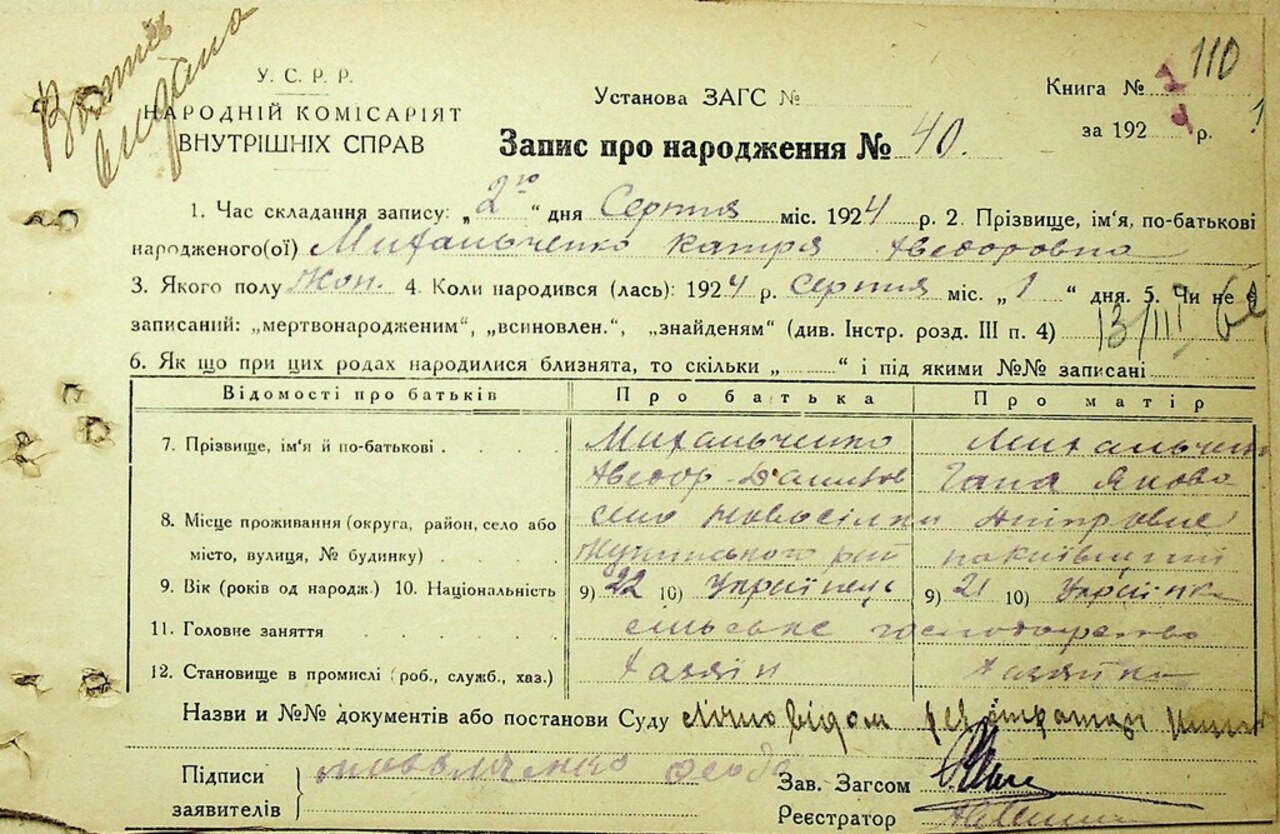 110
У. С. Р. Р.
НАРОДНІЙ КОМІСАРІЯТ
ВНУТРІШНІХ СПРАВ
Установа ЗАГС №
Книга №
за 192 4 р.
Запис про народження № 40.
1. Час складання запису: „2го“ дня Серпня міс. 1924 р. 2. Прізвище, ім'я, по-батькові
народженого(ої) Михальченко Катря Аведоровна
3. Якого полу Жон. 4. Коли народився (лась): 1924 р. Серпня міс. „1“ дня. 5. Чи не є
записаний: „мертвонародженим“, „всиновлен.“, „знайденям“ (див. Інстр. розд. III п. 4) 13/III
6. Як що при цих родах народилися близнята, то скільки „ “ і під якими №№ записані
Відомості про батьків Про батька Про матір
7. Прізвище, ім'я й по-батькові Михальченко Михальченко
Аведор Данилов Гапа Якова
8. Місце проживання (округа, район, село або село Новосілки Дніпровие
місто, вулиця, № будинку)
9. Вік (років од народж.) 10. Національність 9) 22 10) Українець 9) 21 10) Українка
11. Головне заняття сільське господарство
12. Становище в промислі (роб., служб., хаз.) хазяїн хазяйка
Назви и №№ документів або постанови Суду
Підписи
заявителів
особа
Зав. Загсом
Реєстратор